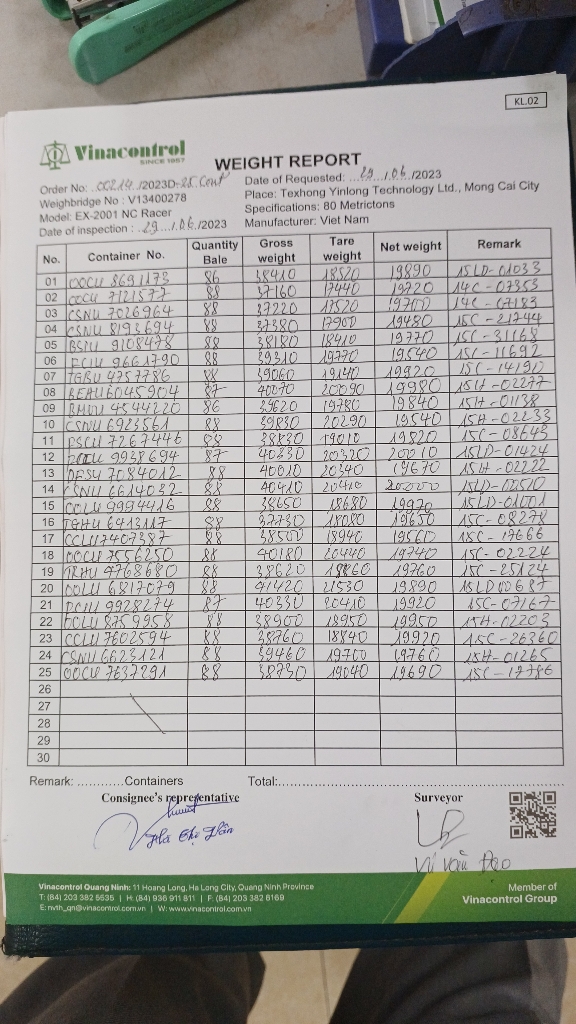 KL.02
Vinacontrol
SINCE 1957
WEIGHT REPORT
Order No: 00214 /2023D-25 Cont
Date of Requested: 29 / 06 /2023
Weighbridge No : V13400278
Place: Texhong Yinlong Technology Ltd., Mong Cai City
Model: EX-2001 NC Racer
Specifications: 80 Metrictons
Date of inspection : 29 / 06 /2023
Manufacturer: Viet Nam
No. Container No. Quantity Bale Gross weight Tare weight Net weight Remark
01 OOCU 8691173 86 38410 18520 19890 15LD-01033
02 OOCU 7121577 88 37160 17440 19720 14C-07353
03 CSNU 7026964 88 37220 17520 19700 14C-07183
04 CSNU 8193694 88 37380 17900 19480 15C-21744
05 BSIU 9108478 88 38180 18410 19770 15C-31168
06 FCIU 9661790 88 39310 19770 19540 15C-11692
07 TGBU 4757786 88 39060 19140 19920 15C-14190
08 BEAU6045904 87 40070 20090 19980 15H-02277
09 BMOU 4544220 86 39620 19780 19840 15H-01138
10 CSNU 6923561 88 39830 20290 19540 15H-02233
11 PSCU 7267446 88 38830 19010 19820 15C-08643
12 9938694 87 40330 20320 20010 15LD-01424
13 DFSU 7084012 88 40010 20340 19670 15H-02222
14 CSNU 6614032 88 40410 20410 20000 15LD-02510
15 CCLU 9994416 88 38650 18680 19970 15LD-01001
16 TGHU 6413117 88 37730 18080 19650 15C-08278
17 CCLU7407387 88 38500 18940 19560 15C-17666
18 OOCU 7556250 88 40180 20440 19740 15C-02224
19 TRHU 4768680 88 38620 18860 19760 15C-25124
20 OOLU 6817079 88 41420 21530 19890 15LD00687
21 9928274 87 40330 20410 19920 15C-07167
22 8759958 88 38900 18950 19950 15H-02203
23 CCLU 7602594 88 38760 18840 19920 15C-26360
24 CSNU 6623121 88 39460 19700 19760 15H-01265
25 OOCU 7637291 88 38730 19040 19690 15C-12786
26
27
28
29
30
Remark: ...........Containers Total:
Consignee's representative Surveyor
Vũ Văn Đạo
Vinacontrol Quang Ninh: 11 Hoang Long, Ha Long City, Quang Ninh Province
T: (84) 203 382 5535 | H: (84) 936 911 811 | F: (84) 203 382 6169
E: nvth_qn@vinacontrol.com.vn | W: www.vinacontrol.com.vn
Member of
Vinacontrol Group